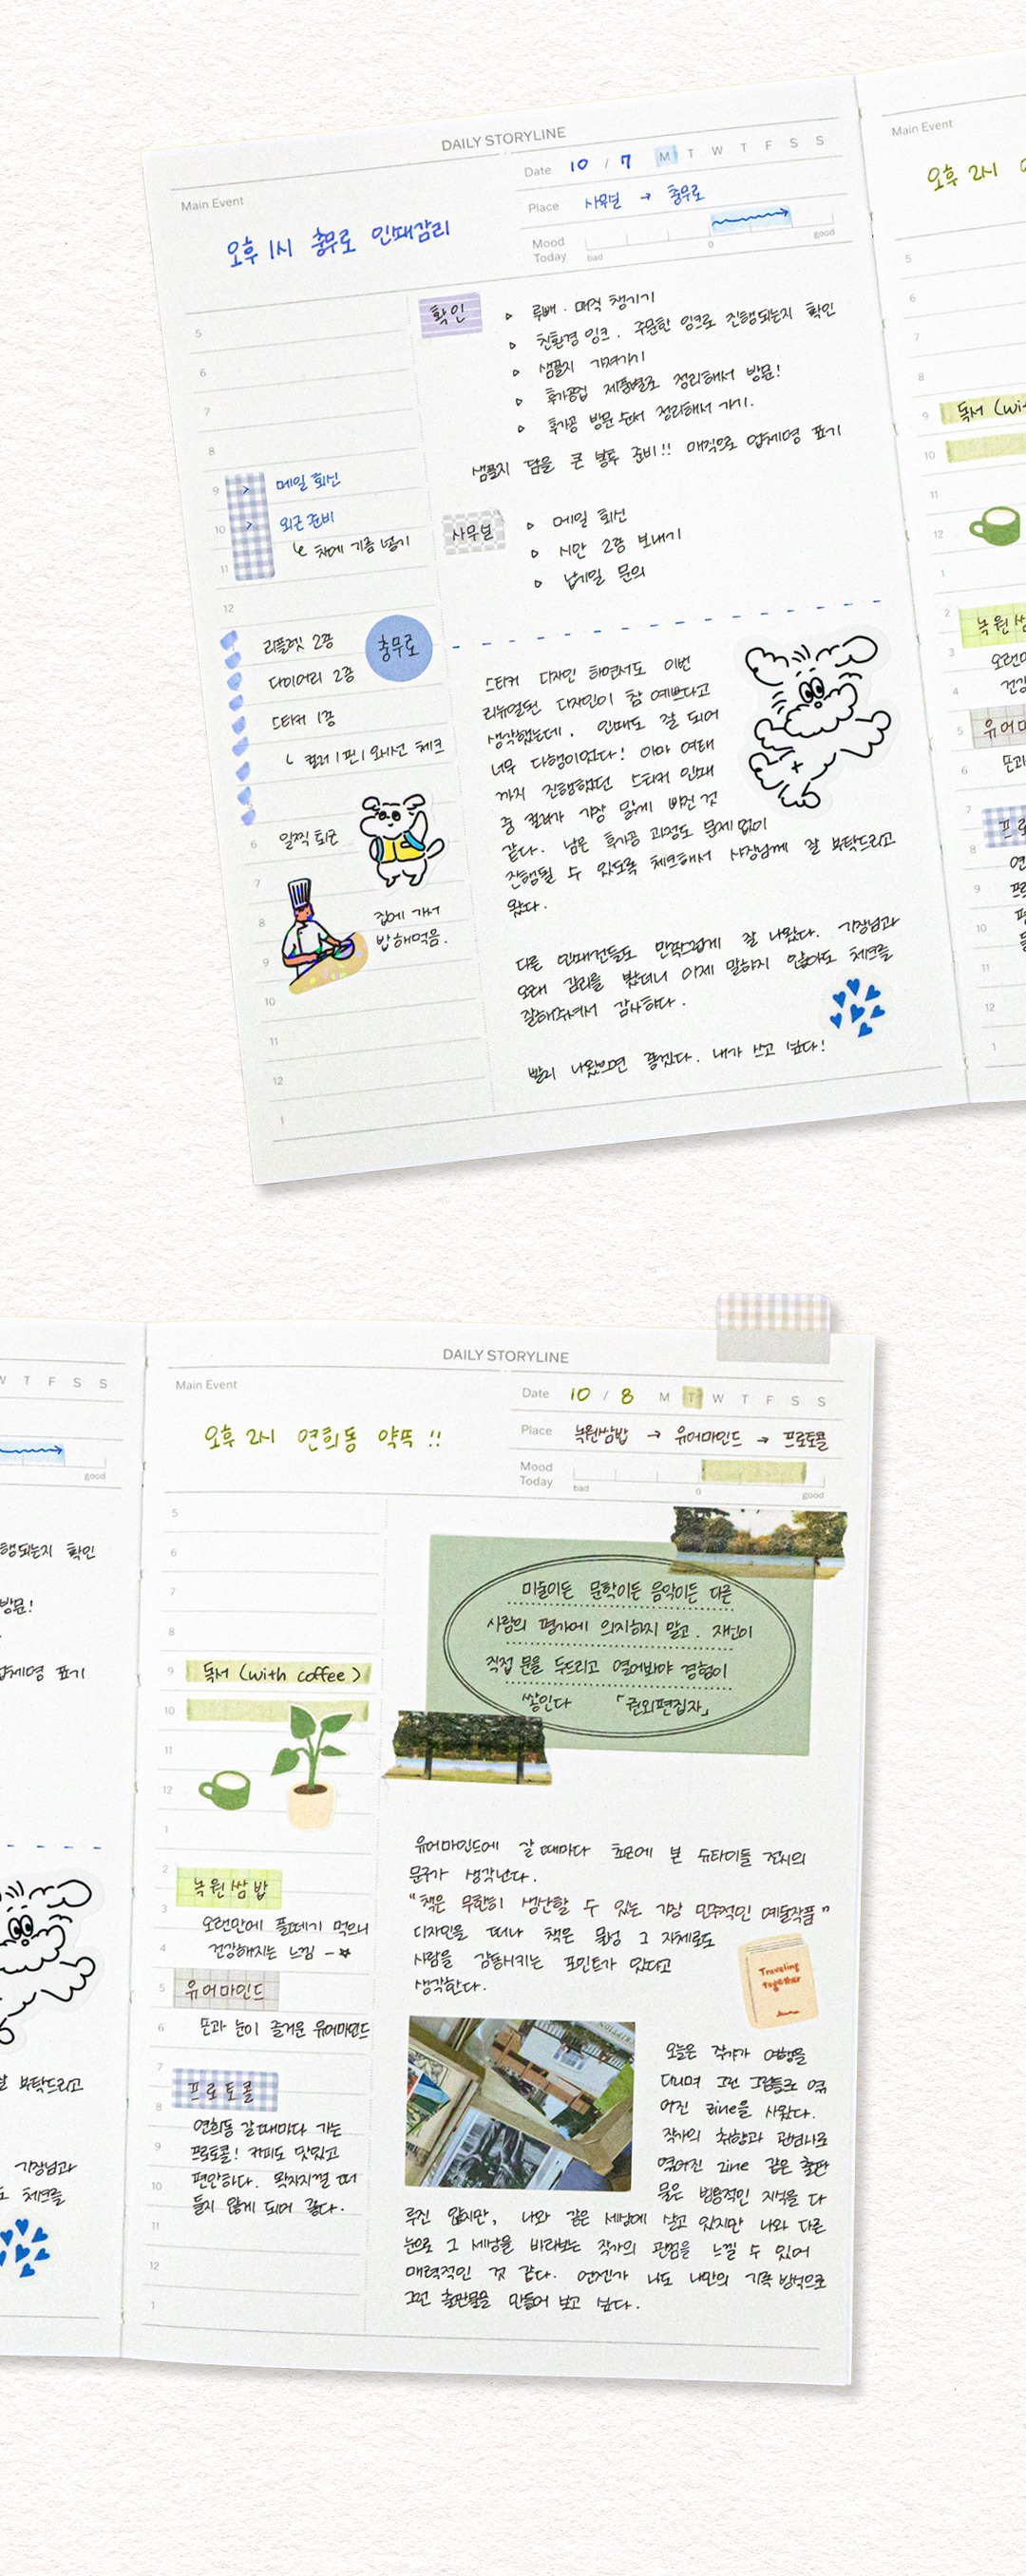 DAILY STORYLINE
Main Event
오후 1시 충무로 인쇄감리
Date 10 / 7 M T W T F S S
Place 사무실 → 충무로
Mood Today bad 0 good
5
6
7
8
9 메일 회신
10 외근 준비
차에 기름 넣기
11
12
리플렛 2종
충무로
다이어리 2종
스티커 1종
컬러 1판 1 오시선 체크
6 일찍 퇴근
7
8 집에 가서
밥해먹음.
9
10
11
12
1
확인
▷ 루뻬 · 매직 챙기기
▷ 친환경 잉크 . 주문한 잉크로 진행되는지 확인
▷ 샘플지 가져가기
▷ 후가공업 제품별로 정리해서 방문!
▷ 후가공 방문 순서 정리해서 가기.
샘플지 담을 큰 봉투 준비!! 매직으로 업체명 표기
사무실
▷ 메일 회신
▷ 시안 2종 보내기
▷ 납기일 문의
스티커 디자인 하면서도 이번
리뉴얼된 디자인이 참 예쁘다고
생각했는데, 인쇄도 잘 되어
너무 다행이었다! 아마 여태
까지 진행했던 스티커 인쇄
중 컬러가 가장 맑게 빠진 것
같다. 남은 후가공 과정도 문제없이
진행될 수 있도록 체크해서 사장님께 잘 부탁드리고
왔다.
다른 인쇄건들도 만족스럽게 잘 나왔다. 기장님과
오래 감리를 봤더니 이제 말하지 않아도 체크를
잘해주셔서 감사하다.
빨리 나왔으면 좋겠다. 내가 쓰고 싶다!
Main Event
오후 2시
5
6
7
8
9 독서 (wit
10
11
12
1
2
녹원쌈
3 오랜만
4 건강
5 유어마
6 손과
7
8 프로
9
10
11
12
1
W T F S S
good
행되는지 확인
방문!
업체명 표기
잘 부탁드리고
기장님과
체크를
DAILY STORYLINE
Main Event
오후 2시 연희동 약속 !!
Date 10 / 8 M T W T F S S
Place 녹원쌈밥 → 유어마인드 → 프로토콜
Mood Today bad 0 good
5
6
7
8
9 독서 (with coffee)
10
11
12
1
2 녹원쌈밥
3 오랜만에 풀떼기 먹으니
4 건강해지는 느낌 ~☆
5 유어마인드
6 손과 눈이 즐거운 유어마인드
7
프로토콜
8
연희동 갈때마다 가는
9 프로토콜! 커피도 맛있고
10 편안하다. 왁자지껄 떠
들지 않게 되어 좋다.
11
12
1
미술이든 문학이든 음악이든 다른
사람의 평가에 의지하지 말고, 자신이
직접 문을 두드리고 열어봐야 경험이
쌓인다 「권외편집자」
유어마인드에 갈 때마다 초반에 본 슈타이들 전시의
문구가 생각난다.
"책은 무한히 생산할 수 있는 가장 민주적인 예술작품"
디자인을 떠나 책은 물성 그 자체로도
사람을 감동시키는 포인트가 있다고
생각한다.
Traveling
together
오늘은 작가가 여행을
다니며 그린 그림들로 엮
어진 zine을 사왔다.
작가의 취향과 관심사로
엮어진 zine 같은 출판
물은 범용적인 지식을 다
루진 않지만, 나와 같은 세상에 살고 있지만 나와 다른
눈으로 그 세상을 바라보는 작가의 관점을 느낄 수 있어
매력적인 것 같다. 언젠가 나도 나만의 기록 방식으로
그런 출판물을 만들어 보고 싶다.